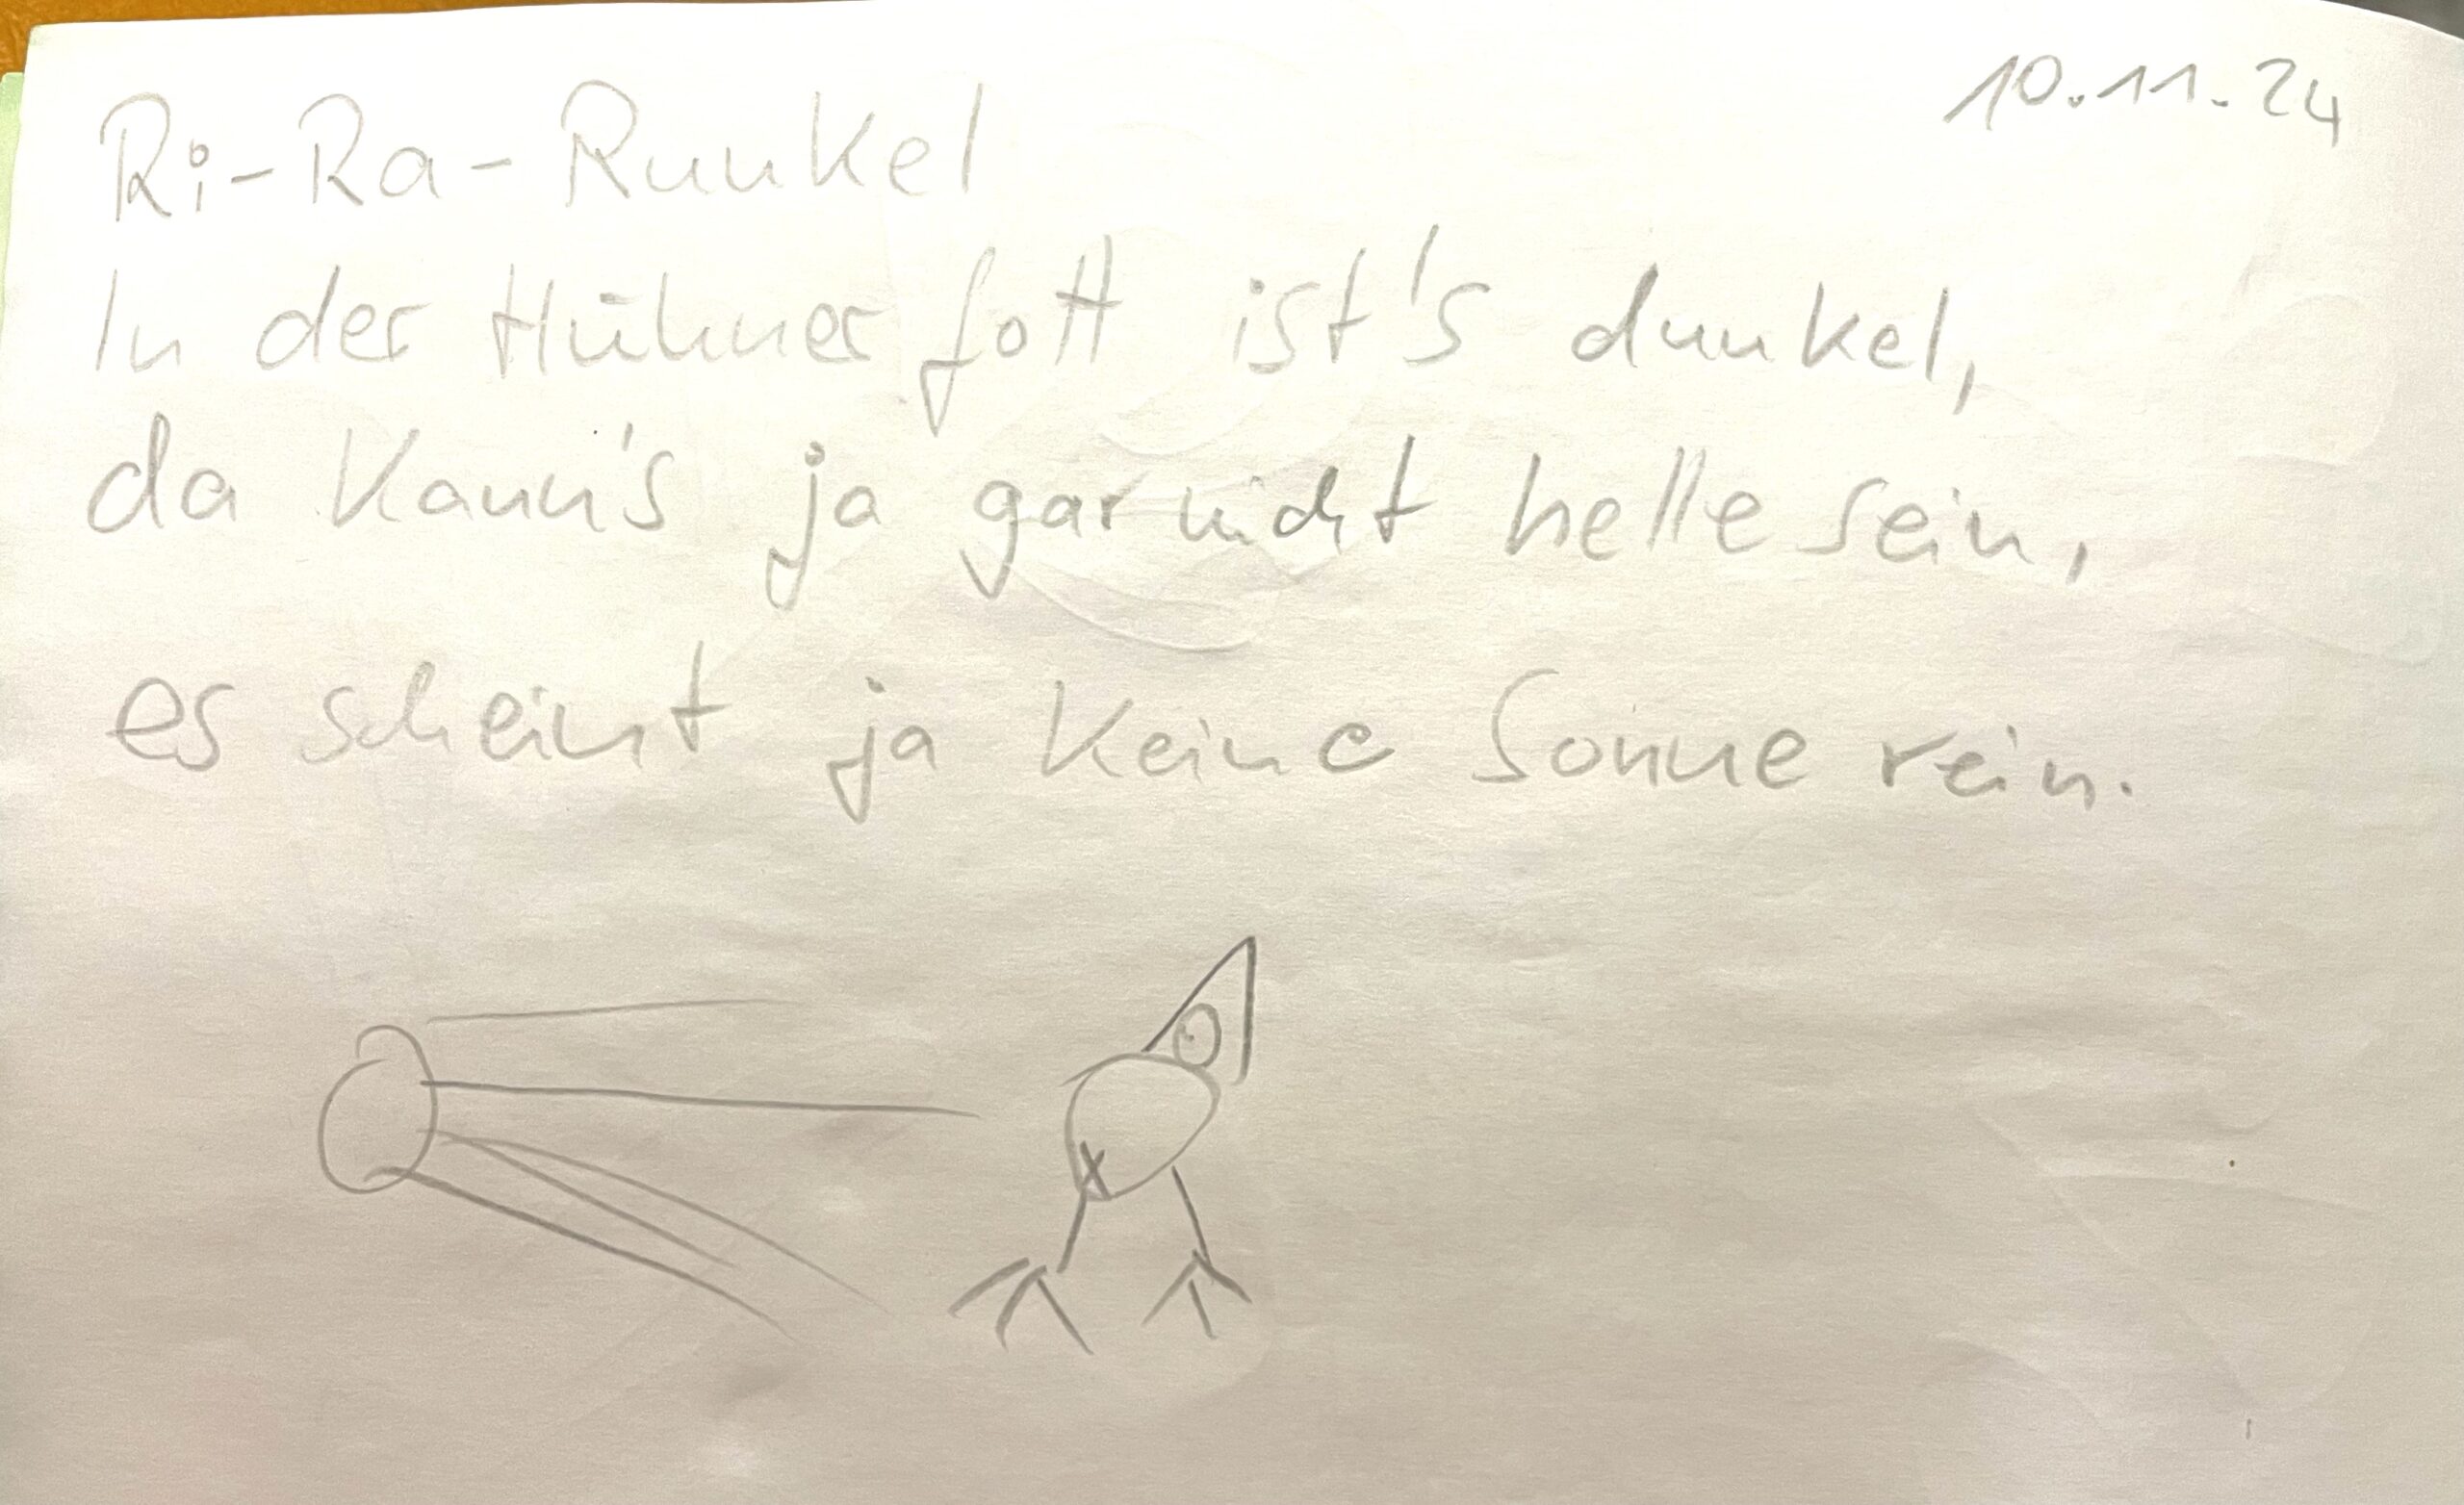 10.11.24
Ri-Ra-Runkel
In der Hühnerfott ist's dunkel,
da kann's ja gar nicht helle sein,
es scheint ja keine Sonne rein.